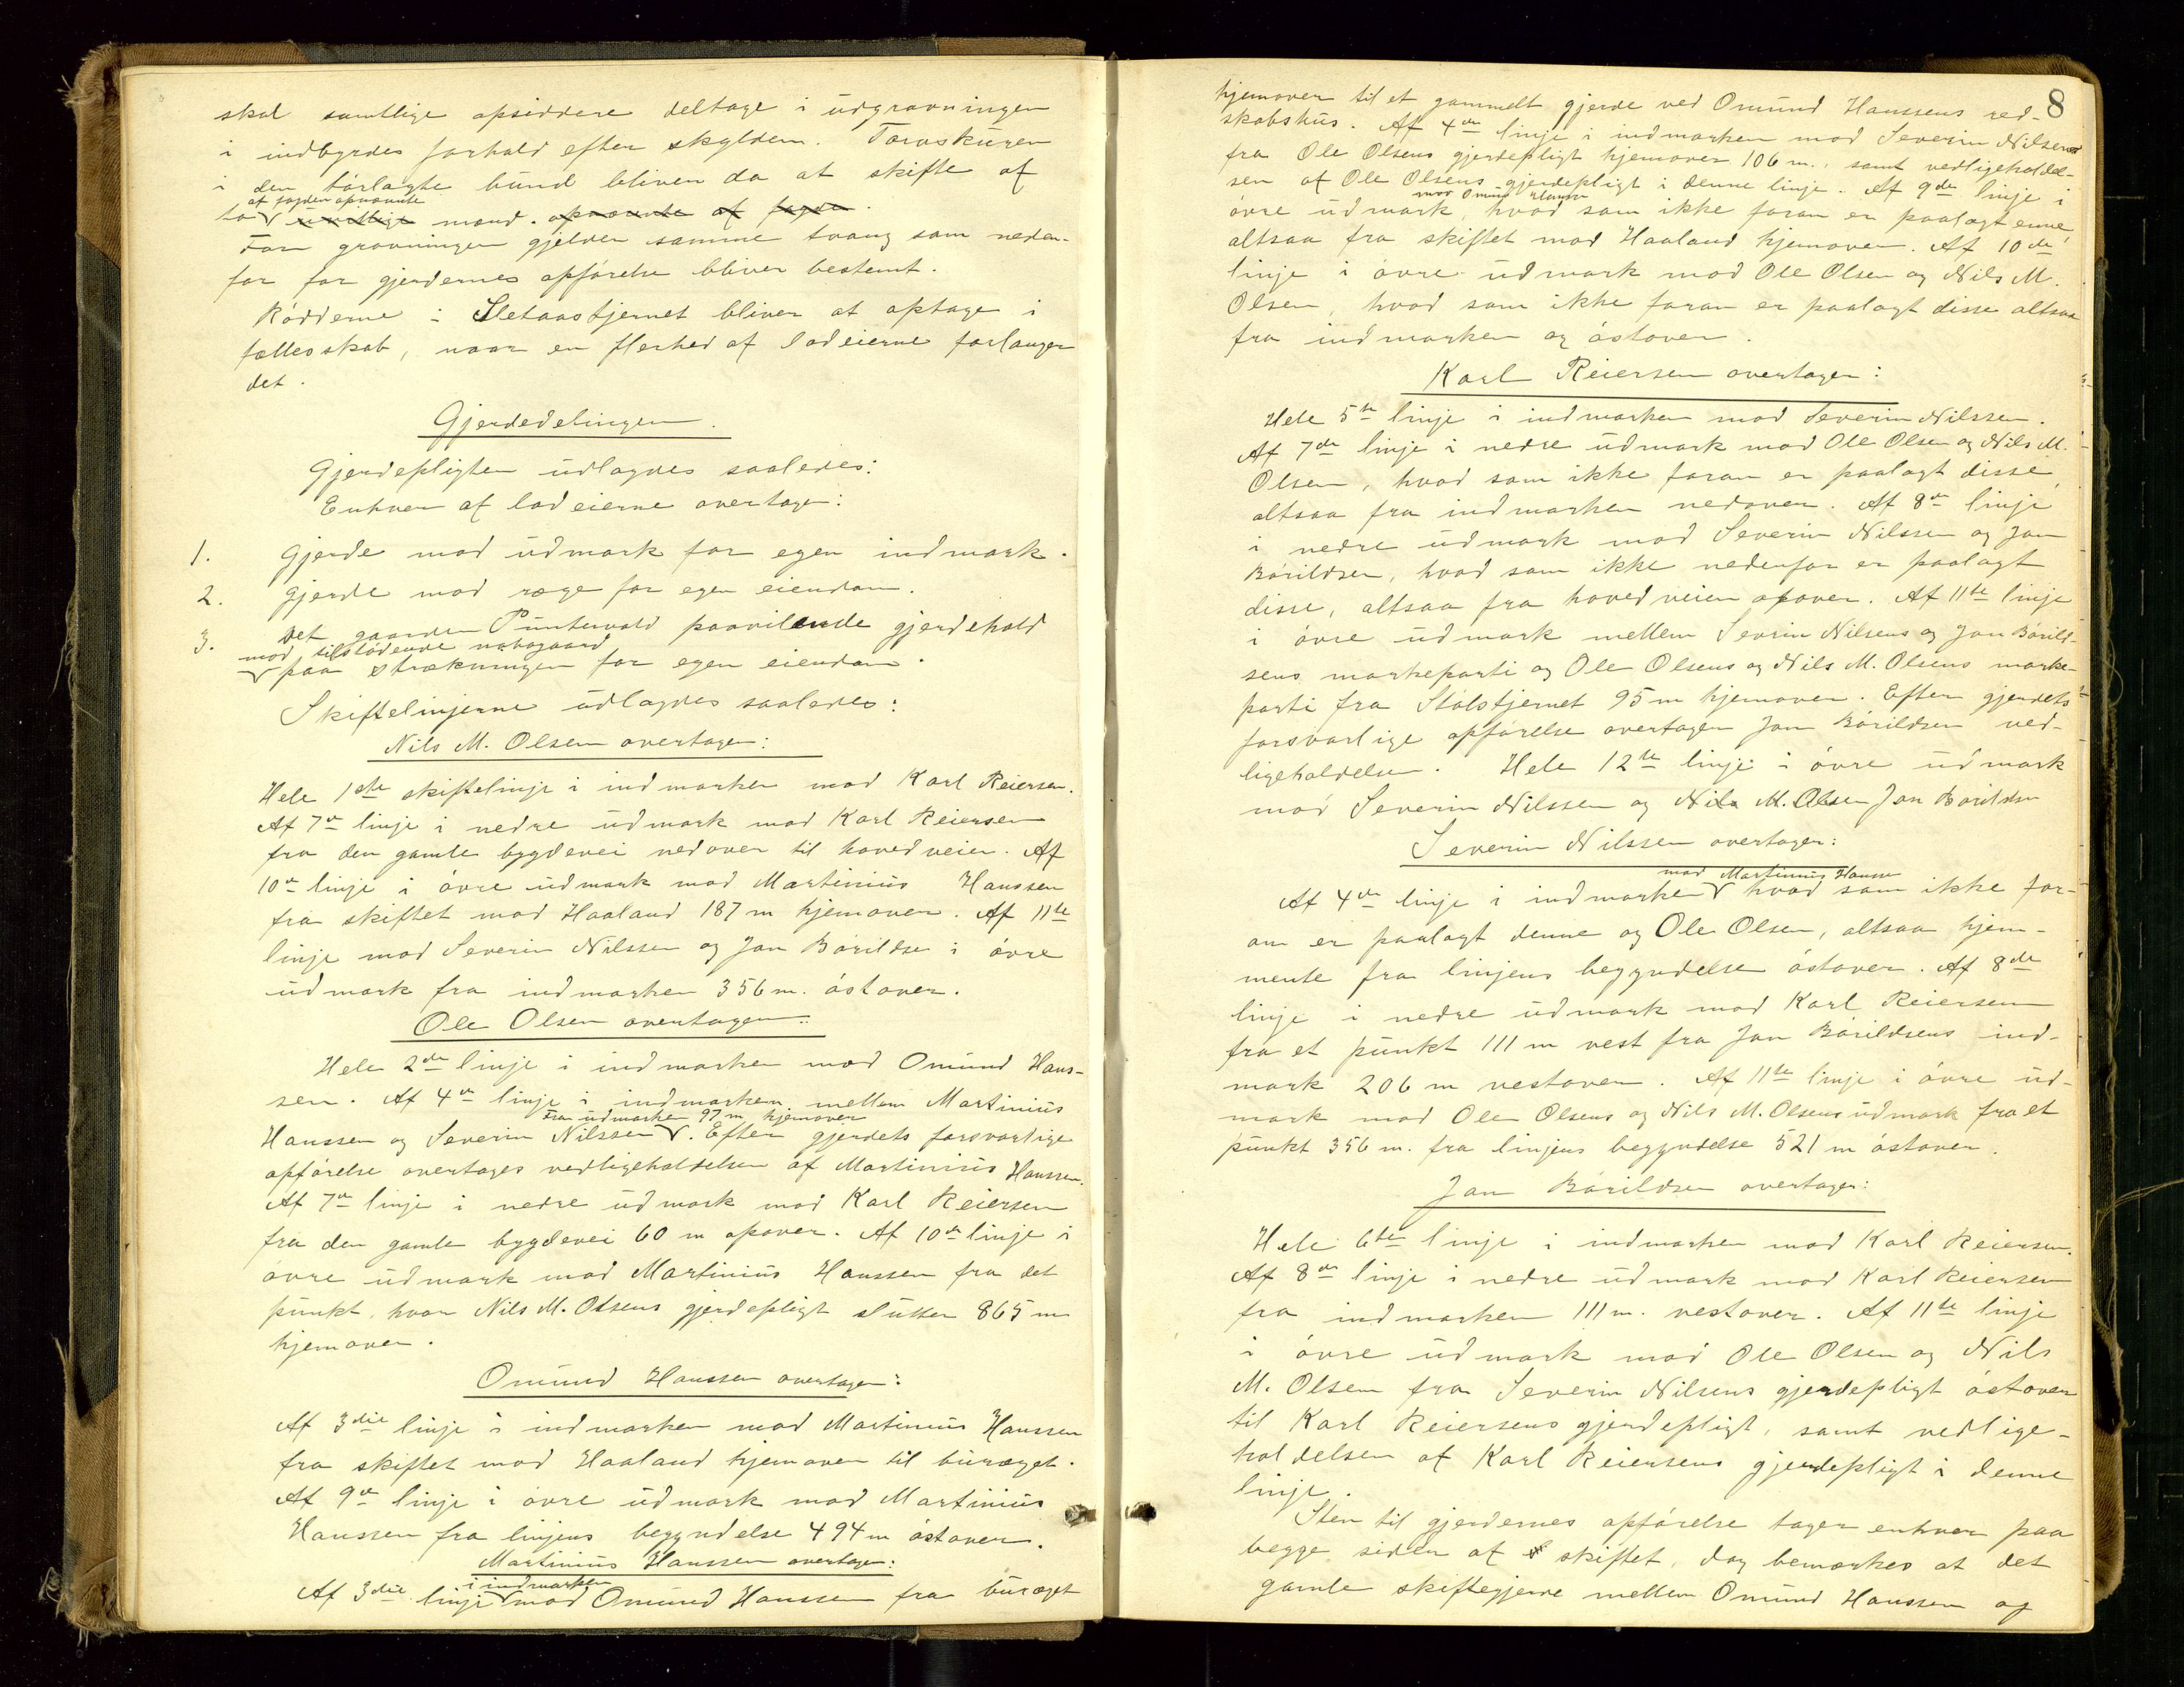 skal samtlige opsiddere deltage i udgravningen
i indbyrdes forhold efter skylden. Torvskuren
i den tørlagte bund bliver da at skifte af
af fogden opnævnte
to uvillige mænd. opnævnte af fogden.
For gravningen gjelder samme tvang som neden-
for for gjerdernes opførelse bliver bestemt.
Rødderne i Sletaastjernet bliver at optage i
fællesskab, naar en flerhed af lodeierne forlanger
det.
Gjerdedelingen.
Gjerdepligten udlagdes saaledes:
Enhver af lodeierne overtager:
1. Gjerde mod udmark for egen indmark.
2. Gjerde mod ræge for egen eiendom.
3. Det gaarden Puntervold paavilende gjerdehold
mod tilstødende nabogaard
paa strækningen for egen eiendom.
Skiftelinjerne udlagdes saaledes:
Nils M. Olsen overtager:
Hele 1ste skiftelinje i indmarken mod Karl Reiersen.
Af 7de linje i nedre udmark mod Karl Reiersen
fra den gamle bygdevei nedover til hovedveien. Af
10de linje i øvre udmark mod Martinius Hanssen
fra skiftet mod Haaland 187 m hjemover. Af 11te
linje mod Severin Nilssen og Jan Bårildse i øvre
udmark fra indmarken 356 m. østover.
Ole Olsen overtager:
Hele 2den linje i indmarken mod Omund Hans-
sen. Af 4de linje i indmarken mellem Martinius
fra udmarken 97 m hjemover
Hanssen og Severin Nilssen. Efter gjerdets forsvarlige
opførelse overtages vedligeholdelsen af Martinius Hanssen.
Af 7de linje i nedre udmark mod Karl Reiersen
fra den gamle bygdevei 60 m opover. Af 10de linje i
øvre udmark mod Martinius Hanssen fra det
punkt, hvor Nils M. Olsens gjerdepligt slutter 865 m
hjemover.
Omund Hanssen overtager:
Af 3die linje i indmarken mod Martinius Hanssen
fra skiftet mod Haaland hjemover til buræget.
Af 9de linje i øvre udmark mod Martinius
Hanssen fra linjens begyndelse 494 m østover.
Martinius Hanssen overtager:
i indmarken
Af 3die linje mod Omund Hanssen fra buræget
8
hjemover til et gammelt gjerde ved Omund Hanssens red-
skabshus. Af 4de linje i indmarken mod Severin Nilsen
fra Ole Olsens gjerdepligt hjemover 106 m., samt vedligeholdel-
sen af Ole Olsens gjerdepligt i denne linje. Af 9de linje i
mod Omund Hanssen
øvre udmark, hvad som ikke foran er paalagt denne,
altsaa fra skiftet mod Haaland hjemover. Af 10de
linje i øvre udmark mod Ole Olsen og Nils M.
Olsen, hvad som ikke foran er paalagt disse altsaa
fra indmarken og østover.
Karl Reiersen overtager:
Hele 5te linje i indmarken mod Severin Nilssen.
Af 7de linje i nedre udmark mod Ole Olsen og Nils M.
Olsen, hvad som ikke foran er paalagt disse,
altsaa fra indmarken nedover. Af 8de linje
i nedre udmark mod Severin Nilssen og Jan
Bårildsen, hvad som ikke nedenfor er paalagt
disse, altsaa fra hovedveien opover. Af 11te linje
i øvre udmark mellem Severin Nilsens og Jan Bårild-
sens markeparti og Ole Olsens og Nils M. Olsens marke-
parti fra Stølstjernet 95 m hjemover. Efter gjerdets
forsvarlige opførelse overtager Jan Bårildsen ved-
ligeholdelsen. Hele 12te linje i øvre udmark
mod Severin Nilssen og Nils M. Olsen Jan Bårildsen
Severin Nilssen overtager:
mod Martinius Hanssen
Af 4de linje i indmarken hvad som ikke for-
an er paalagt denne og Ole Olsen, altsaa hjem-
mente fra linjens begyndelse østover. Af 8de
linje i nedre udmark mod Karl Reiersen
fra et punkt 111 m vest fra Jan Bårildsens ind-
mark 206 m vestover. Af 11te linje i øvre ud-
mark mod Ole Olsens og Nils M. Olsens udmark fra et
punkt 356 m. fra linjens begyndelse 521 m østover.
Jan Bårildsen overtager:
Hele 6te linje i indmarken mod Karl Reiersen.
Af 8de linje i nedre udmark mod Karl Reiersen
fra indmarken 111 m. vestover. Af 11te linje
i øvre udmark mod Ole Olsen og Nils
M. Olsen fra Severin Nilsens gjerdepligt østover
til Karl Reiersens gjerdepligt, samt vedlige-
holdelsen af Karl Reiersens gjerdepligt i denne
linje.
Sten til gjerdernes opførelse tager enhver paa
begge sider af skiftet, dog bemærkes at det
gamle skiftegjerde mellem Omund Hanssen og